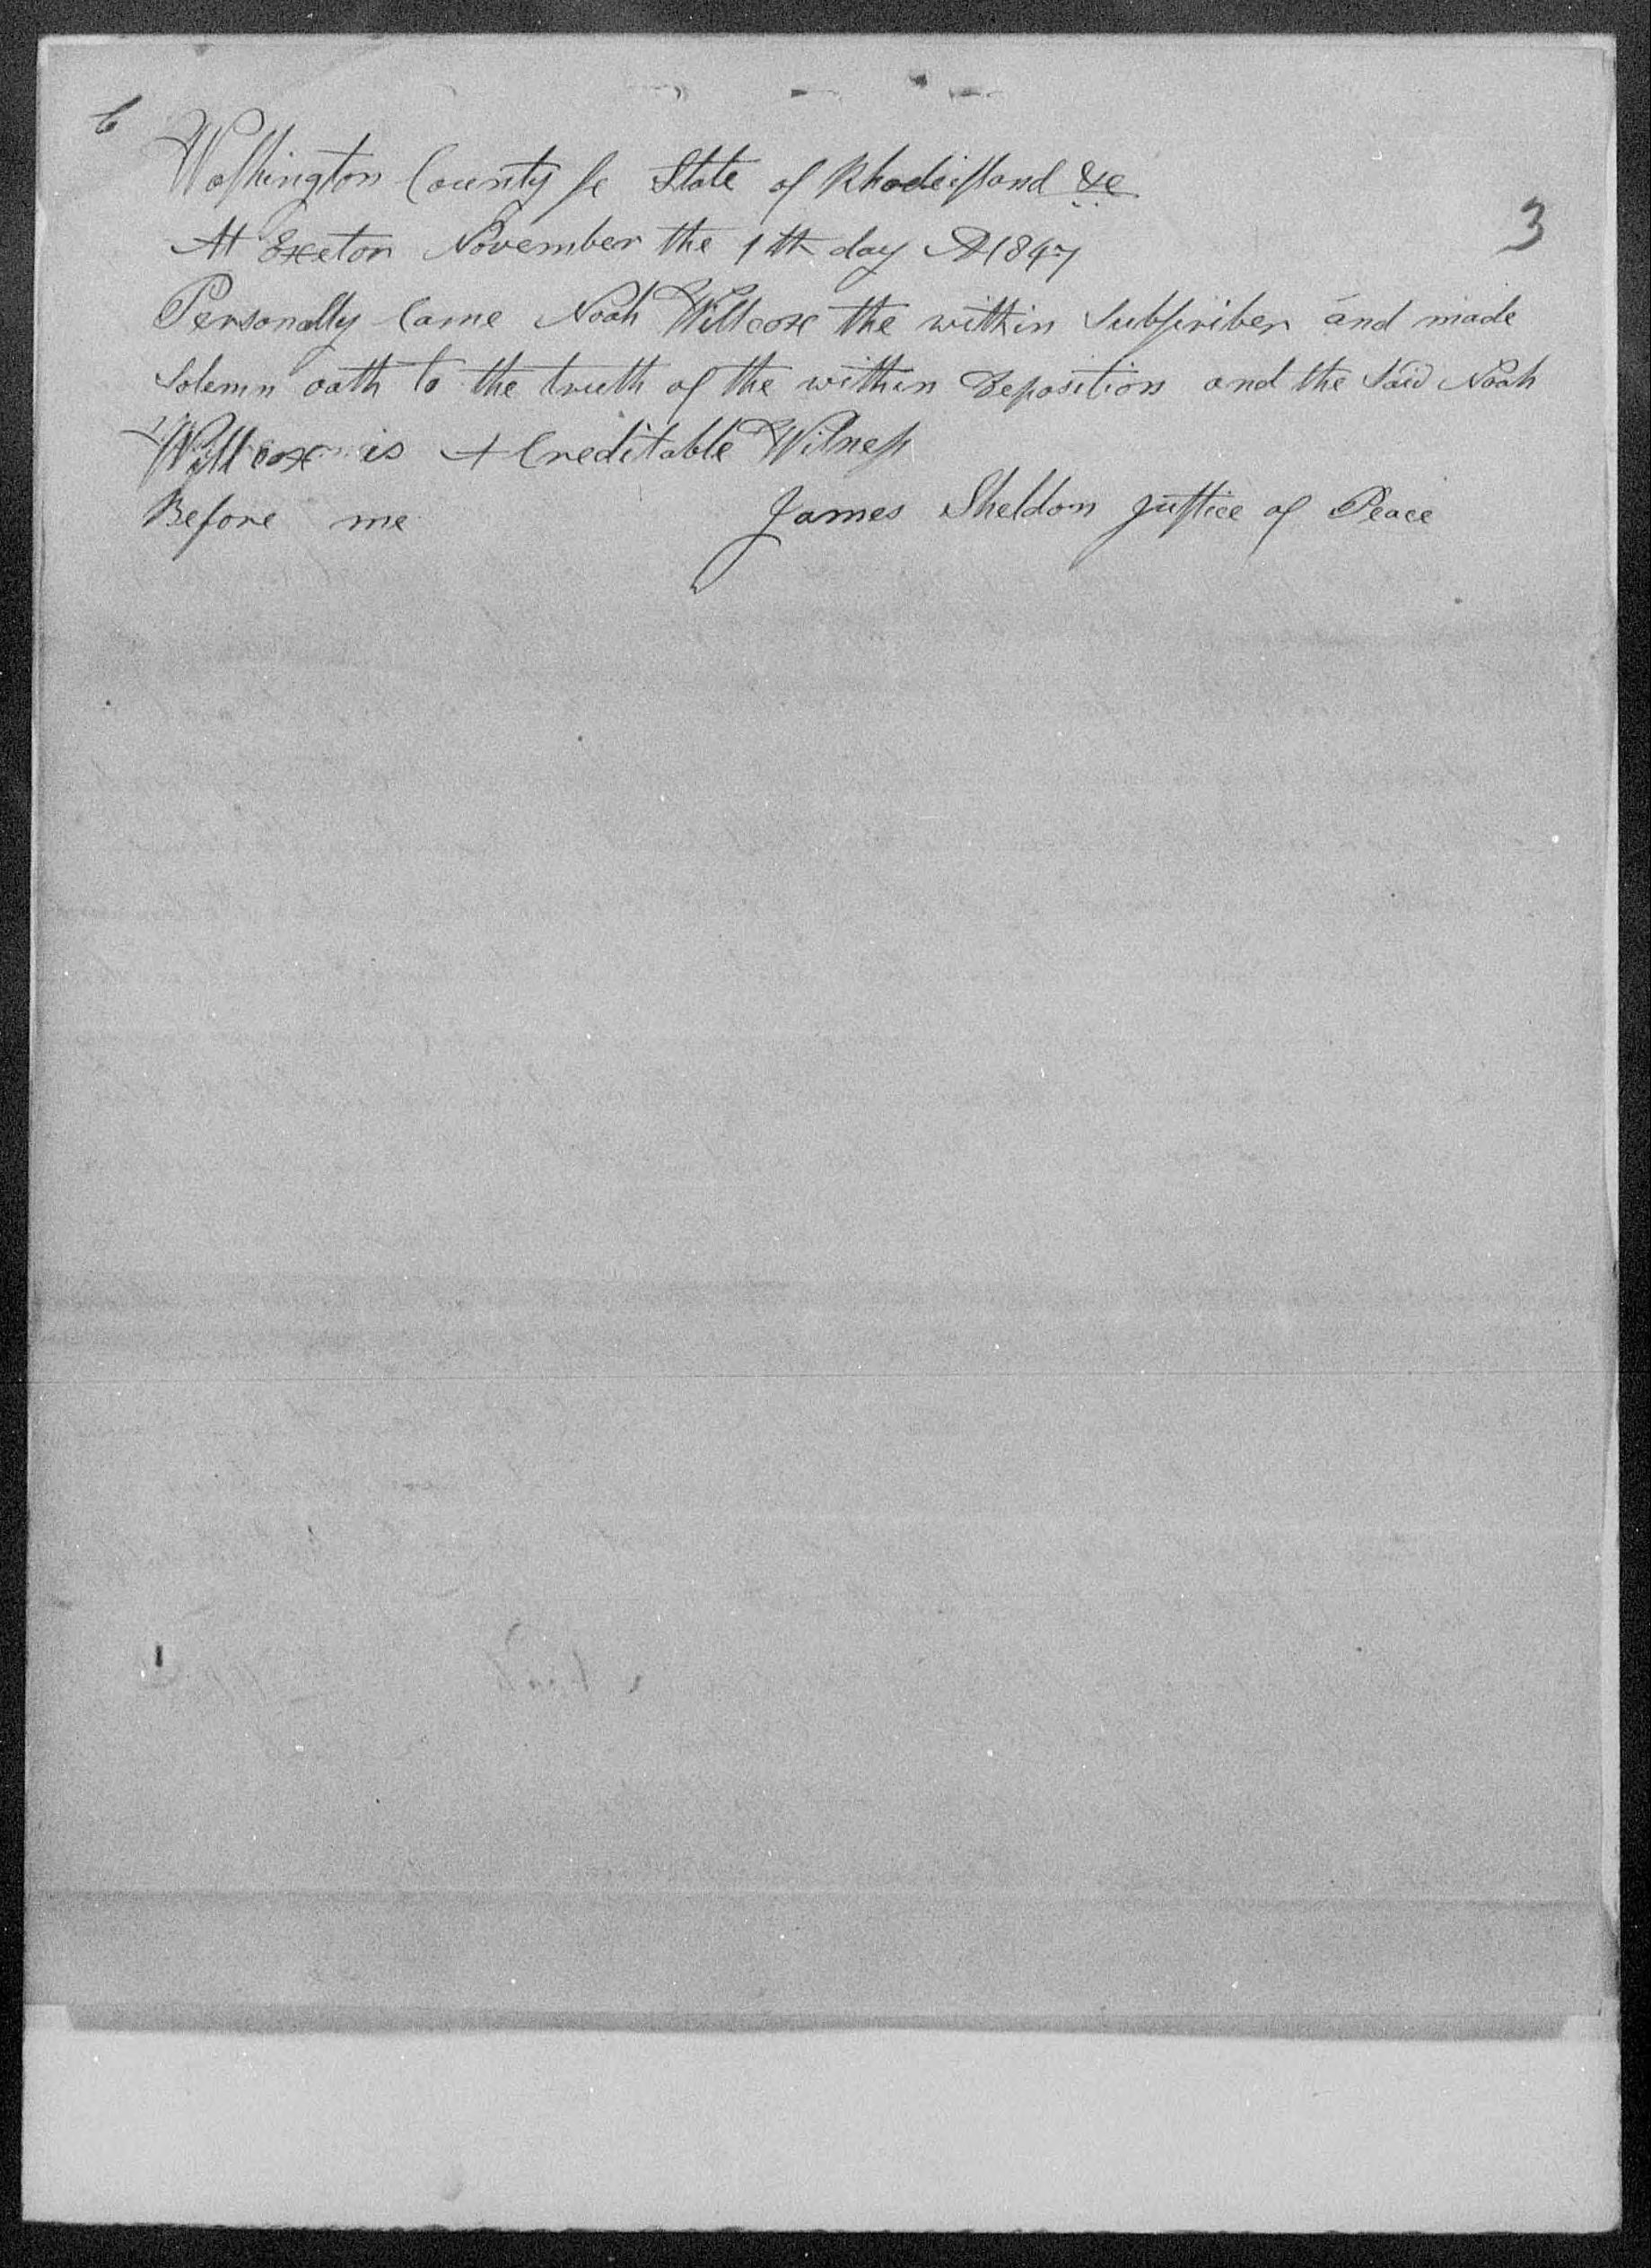 6
Washington County Sc State of Rhodeisland &c
3
At Exetor November the 1th day AD 1847
Personally Came Noah Willcox the within Subscriber and made
Solemn oath to the truth of the within Deposition and the Said Noah
Willcox is A Creditable Witness
Before me James Sheldon Justice of Peace